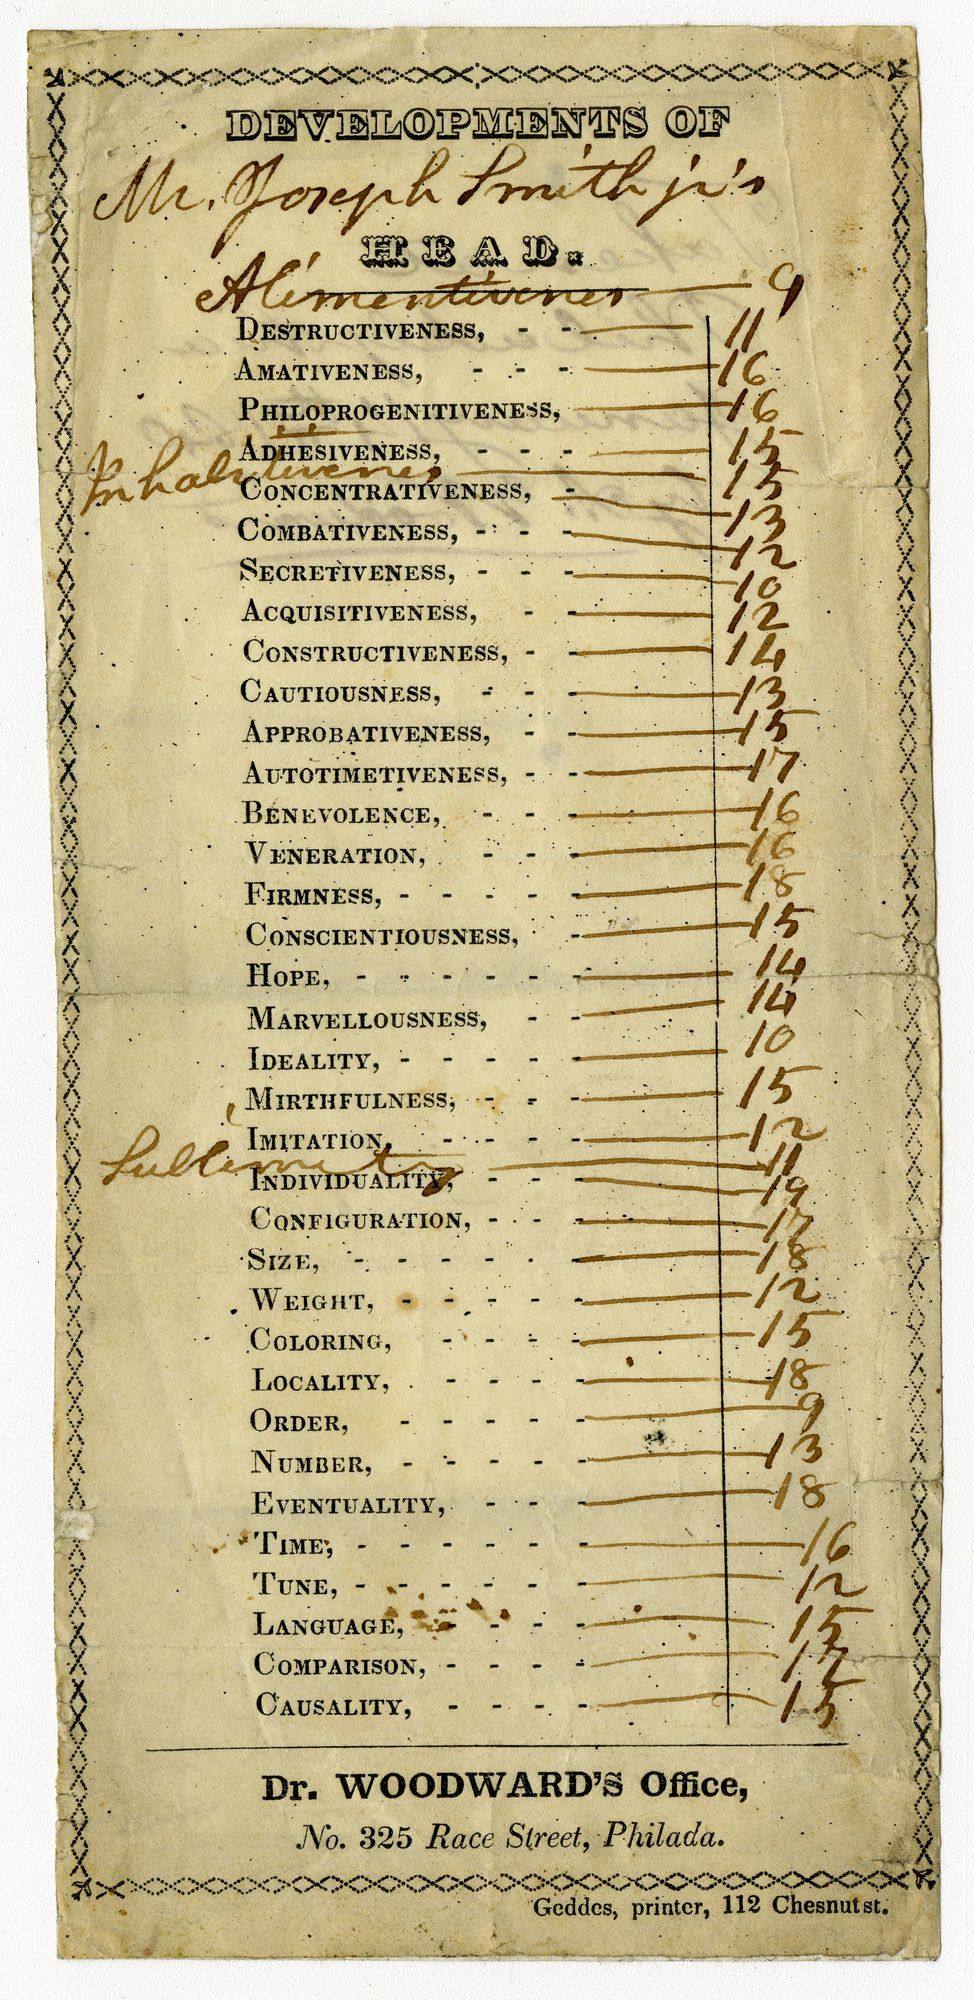 DEVELOPMENTS OF
Mr. Joseph Smith jr's
HEAD.
Alimentivenes 9
DESTRUCTIVENESS, - - 11
AMATIVENESS, - - - 16
PHILOPROGENITIVENESS, 16
ADHESIVENESS, - - - 15
Inhabitivenes 15
CONCENTRATIVENESS, - 13
COMBATIVENESS, - - - 12
SECRETIVENESS, - - - 10
ACQUISITIVENESS, - - 12
CONSTRUCTIVENESS, - - 14
CAUTIOUSNESS, - - - 13
APPROBATIVENESS, - - 15
AUTOTIMETIVENESS, - - 17
BENEVOLENCE, - - - 16
VENERATION, - - - 16
FIRMNESS, - - - - - 18
CONSCIENTIOUSNESS, - 15
HOPE, - - - - - - 14
MARVELLOUSNESS, - - 14
IDEALITY, - - - - - 10
MIRTHFULNESS, - - - 15
IMITATION, - - - - 12
Sublimity 11
INDIVIDUALITY, - - - 19
CONFIGURATION, - - - 17
SIZE, - - - - - - 18
WEIGHT, - - - - - 12
COLORING, - - - - 15
LOCALITY, - - - - 18
ORDER, - - - - - 9
NUMBER, - - - - - 13
EVENTUALITY, - - - 18
TIME, - - - - - - 16
TUNE, - - - - - - 12
LANGUAGE, - - - - 15
COMPARISON, - - - - 17
CAUSALITY, - - - - 15
Dr. WOODWARD'S Office,
No. 325 Race Street, Philada.
Geddes, printer, 112 Chesnut st.